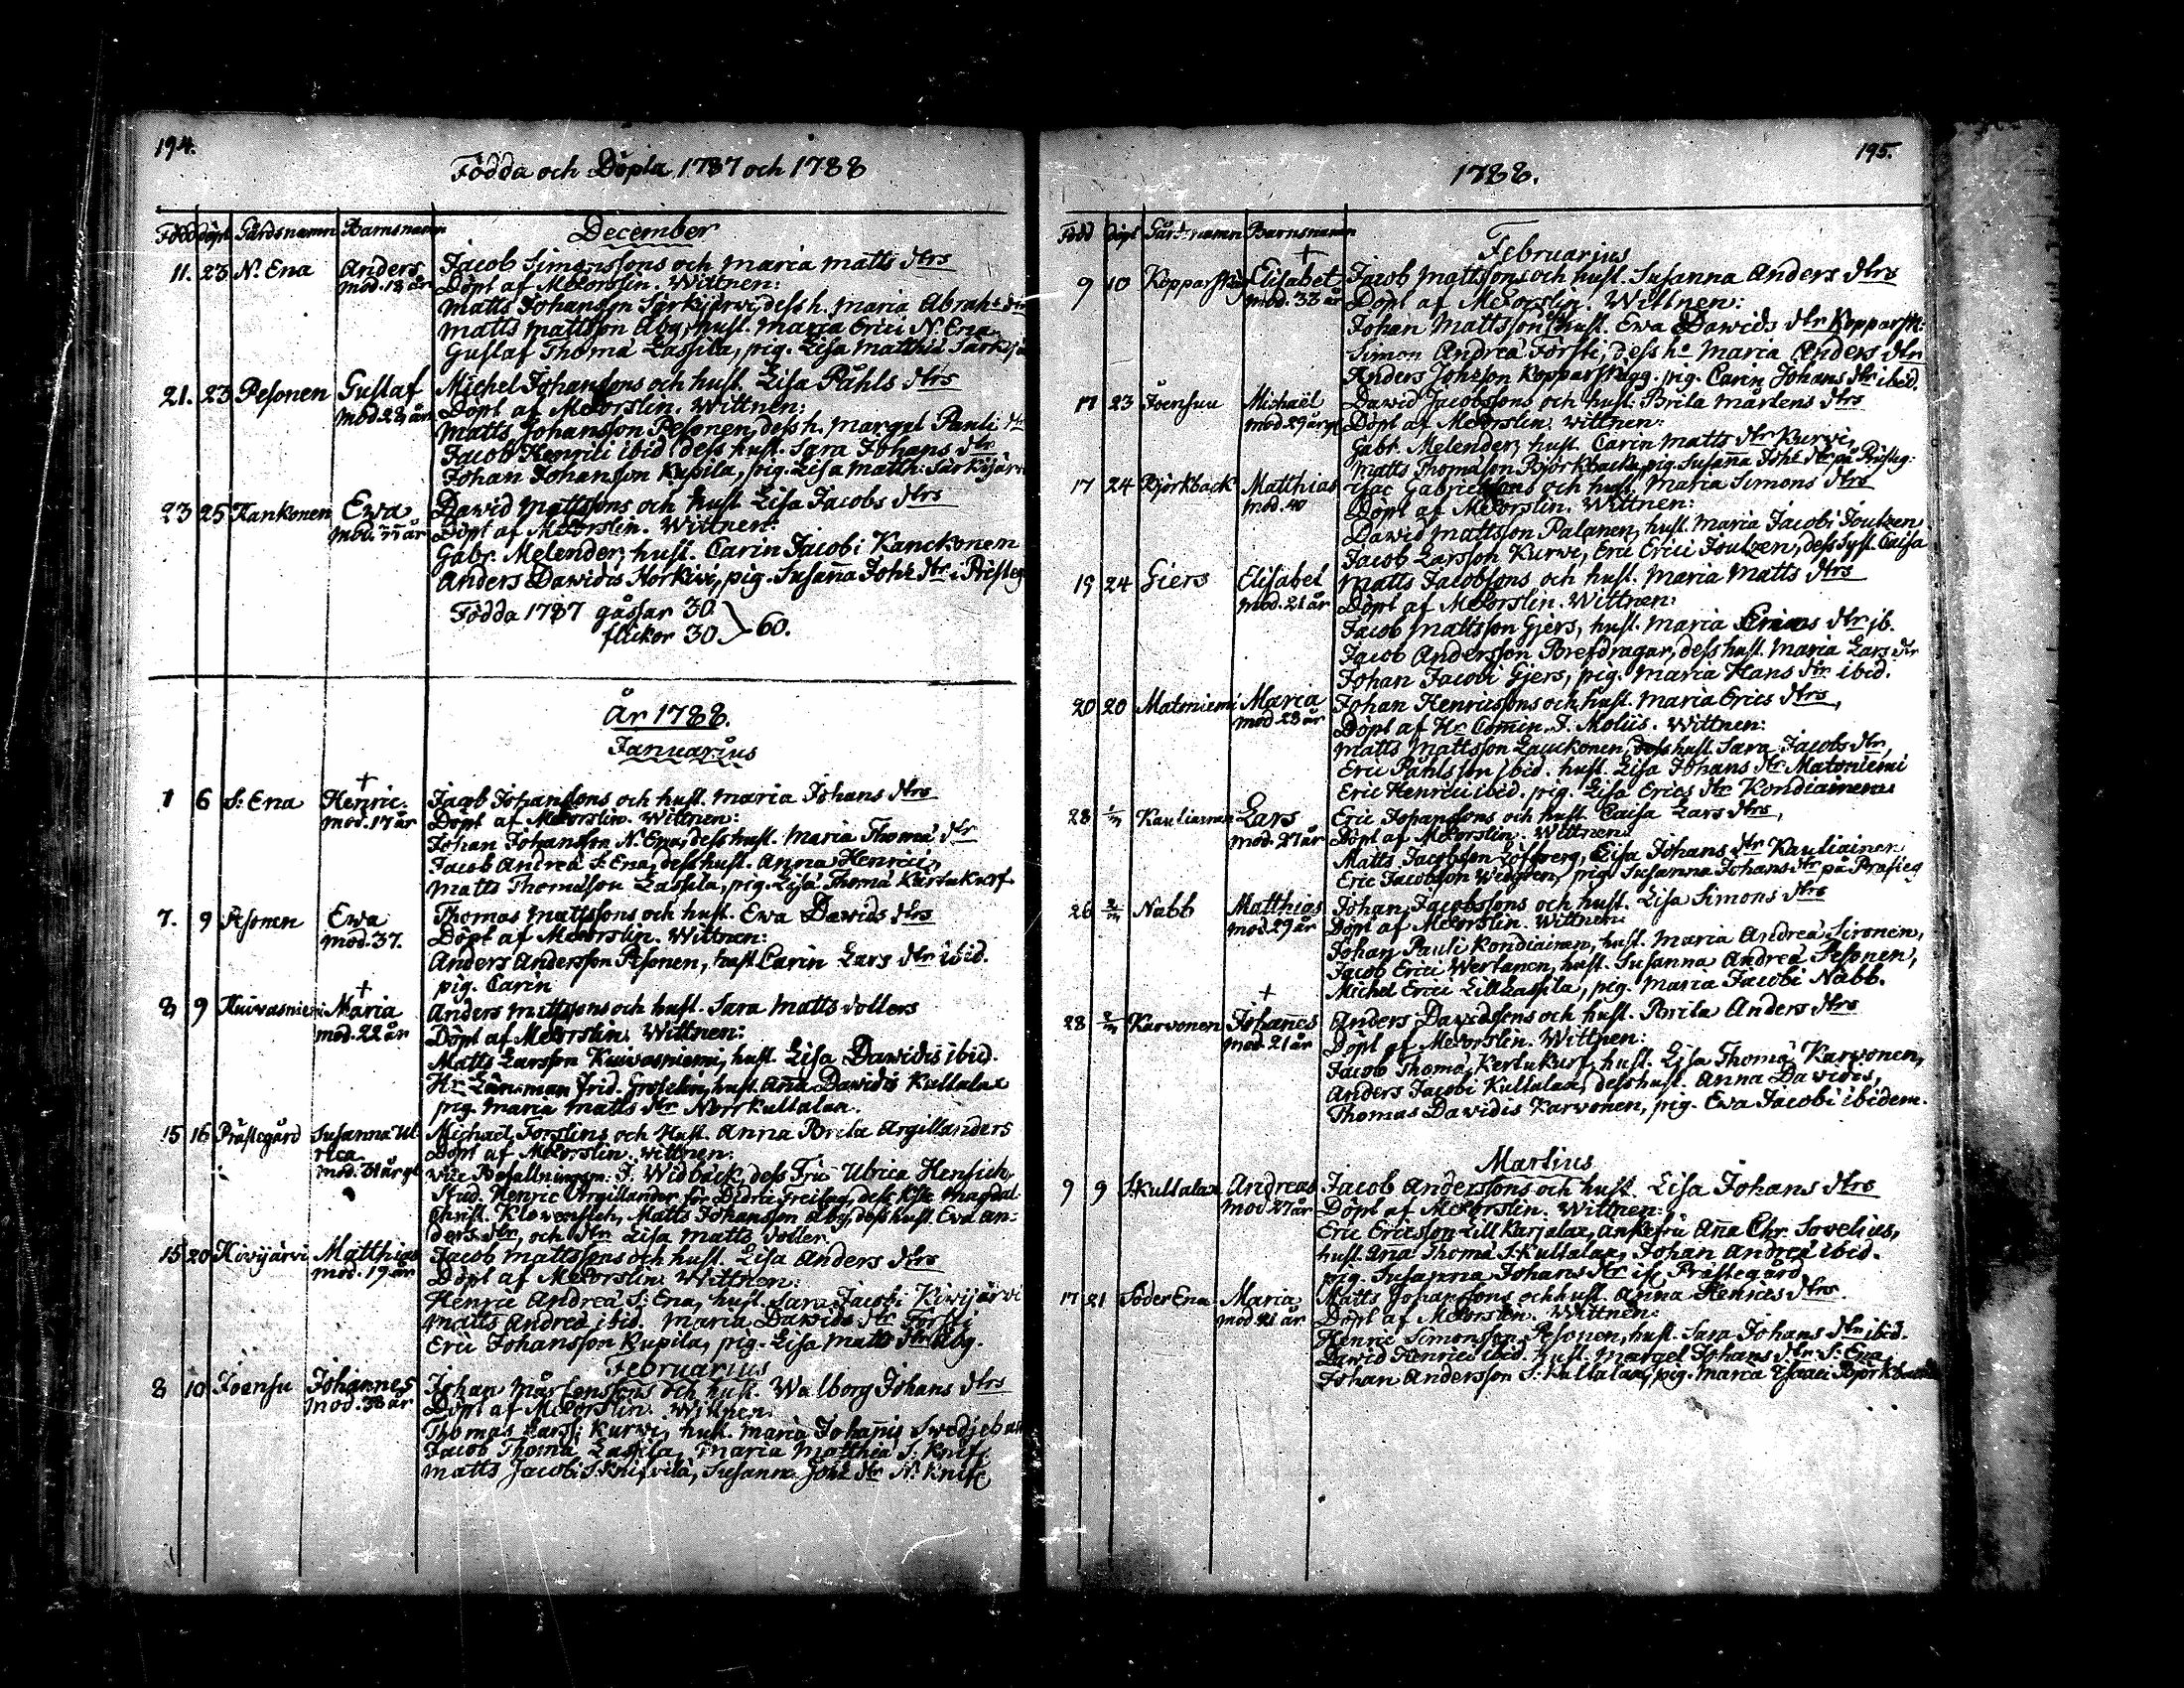 194.
Födda och Döpta 1787 och 1788
Född döpt Gårdsnamn Barnsnamn
December
11. 23 N. Ena Anders Jacob Simonssons och maria matts dtrs
mod. 18 år Döpt af M Forslin. Wittnen:
matts Johansson Särkijärwi, dess h. maria Abrah: dtr
matts mattsson Aby, hust. maria Erici N. Ena
Gustaf Thomæ Lassila, pig. Lisa matthiæ
21. 23 Pesonen Gustaf Michel Johanssons och hust. Lisa Påhls dtrs
mod. 28 år Döpt af M Forslin. Wittnen:
matts Johansson Pesonen, dess h. marget Pauli dtr
Jacob Henrici ibid, dess hust. Sara Johans dtr
Johan Johansson Kupila, pig. Lisa matth: Särkijärwi
23 25 Kankonen Ewa David mattssons och hust Lisa Jacobs dtrs
mod. år Döpt af M Forslin. Wittnen:
Gabr. Melender, hust. Carin Jacobi Kanckonen
Anders Dawidis Horkiwi, pig. Susanna Joh: dtr i Pristeg
Födda 1787 gåssar 30
flickor 30 } 60.
År 1788.
Januarius
+
1 6 S: Ena Henric Jacob Johanssons och hust. maria Johans dtrs
mod. 17 år Döpt af M Forslin. Wittnen:
Johan Johansson N. Ena, dess hust. Maria Thomæ dtr
Jacob Andreæ S: Ena, dess hust. Anna Henrici,
matts Thomasson Lassila, pig. Lisa Thomæ
7. 9 Pesonen Ewa Thomas mattssons och hust. Ewa Dawids dtrs
mod. 37. Döpt af M Forslin. Wittnen:
Anders Andersson Pesonen, hust Carin Lars dtr ibid.
pig. Carin
+
8 9 Kuivasniemi Maria Anders mattssons och hust. Sara matts dotters
mod. 22 år Döpt af M Forslin. Wittnen:
Matts Larsson Kuivasniemi, hust. Lisa Dawidis ibid.
Hr Länsman Frid. hust. Anna Dawidis Kullalax
pig. maria matts dtr Norrkullalax.
15 16 Prästegård Susanna Ul- Michaël Forslins och Hust. Anna Brita Argillanders
rica Döpt af M Forslin. Wittnen:
mod. 31 år gl Vice Befallningsm: J. Widbäck, dess Fru Ulrica
Stud. Henric Argillander för Didric Freitag, dess magdal
Christ. Matts Johansson Åby, dess hust. Eva An-
ders dtr, och dtr Lisa matts dotter.
15 20 Kivijärvi Matthias Jacob mattssons och hust. Lisa Anders dtrs
mod. 19 år Döpt af M Forslin. Wittnen:
Henric Andreæ S: Ena, hust. Sara Jacobi Kiwijärvi
matts Andreæ ibid. maria Dawids dtr Försti
Eric Johansson Kupila, pig. Lisa matts dtr Åby.
Februarius
8 10 Joensu Johannes Johan Mårtenssons och hust. Walborg Johans dtrs
mod. 38 år Döpt af M Forslin. Wittnen:
Thomas Larss: Kurwi, hust. maria Johannis
Jacob Thomæ Lassila, maria Matthiæ S: Knif,
matts Jacobi S: Susanna Joh: dtr N: Knif
195.
1788.
Född döpt Gårdsnamn Barnsnamn
Februarius
+
9 10 Elisabet Jacob mattssons och hust. Susanna Anders dtrs
mod. 33 år Döpt af M Forslin. Wittnen:
Johan Mattsson hust. Ewa Dawids dtr Kopparsk:
Simon Andreæ Försti, dess h: Maria Anders dtr
Anders Johsson pig. Carin Johans dtr ibid.
17 23 Joensuu Michaël Dawid Jacobssons och hust: Brita Mårtens dtrs
mod. 29 år gl Döpt af M Forslin. Wittnen:
Gabr. Melender, hust. Carin Matts dtr Kurwi,
matts Thomasson Björkbacka, pig. Susanna Joh: dtr på Pristeg:
17 24 Björkback Matthias Isac Gabrielssons och hust. Maria Simons dtrs
mod. 40 Döpt af M Forslin. Wittnen:
Dawid mattsson Palanen, hust. Maria Jacobi Joutzen
Jacob Larsson Kurwi, Eric Erici Joutzen, dess syst. Caisa
19 24 Giers Elisabet Matts Jacobsons och hust. Maria Matts dtrs
mod. 21 år Döpt af M Forslin. Wittnen:
Jacob Mattsson Gjers, hust. Maria dtr ib.
Jacob Andersson Brefdragar, dess hust. Maria Lars dtr
Johan Jacobi Gjers, pig. Maria Hans dtr ibid.
20 20 Matoniemi Maria Johan Henricssons och hust. Maria Erics dtrs,
mod. 28 år Döpt af Hr Comin. J. Molüs. Wittnen:
Matts Mattsson Lauckonen, dess hust. Sara Jacobs dtr,
Eric Påhlsson ibid. hust. Lisa Johans dtr Matoniemi
Eric Henrici ibid. pig. Lisa Erics dtr Kondiainen
28 Kauliainen Lars Eric Johanssons och hust. Caisa Lars dtrs,
mod. 27 år Döpt af M Forslin. Wittnen:
Matts Jacobsson Löfberg, Lisa Johans dtr Kauliainen
Eric Jacobsson Widgren, pig. Susanna Johans dtr på
26 Nabb Matthias Johan Jacobssons och hust. Lisa Simons dtrs
mod. 29 år Döpt af M Forslin. Wittnen:
Johan Pauli Kondiainen, hust. Maria Andreæ Sironen,
Jacob Erici Wertanen, hust. Susanna Andreæ Pesonen,
Michel Erici Lill Lassila, pig. Maria Jacobi Nabb.
+
28 Karvonen Johannes Anders Dawidsons och hust. Brita Anders dtrs
mod. 21 år Döpt af M Forslin. Wittnen:
Jacob Thomæ hust. Lisa Thomæ Karwonen,
Anders Jacobi Kullalax, dess hust. Anna Dawidis,
Thomas Davidis Karvonen, pig. Ewa Jacobi ibidem.
Martius
9 9 S: Kullalax Andreas Jacob Anderssons och hust. Lisa Johans dtrs
mod 27 år Döpt af M Forslin. Wittnen:
Eric Ericsson Lill Karjalax, Ankefru Anna Chr. Sovelius,
hust. Anna Thomæ S: Kullalax, Johan Andreæ ibid.
pig. Susanna Johans dtr Prästegård
17 21 Söder Ena Maria Matts Johanssons och hust. Anna Henrics dtrs.
mod 21 år Döpt af M Forslin. Wittnen:
Henric Simonsson Pesonen, hust. Sara Johans dtr ibid.
Dawid Henrici ibid. hust. Marget Johans dtr S: Ena
Johan Andersson S: Kullalax, pig. Maria Isaaci Björkback